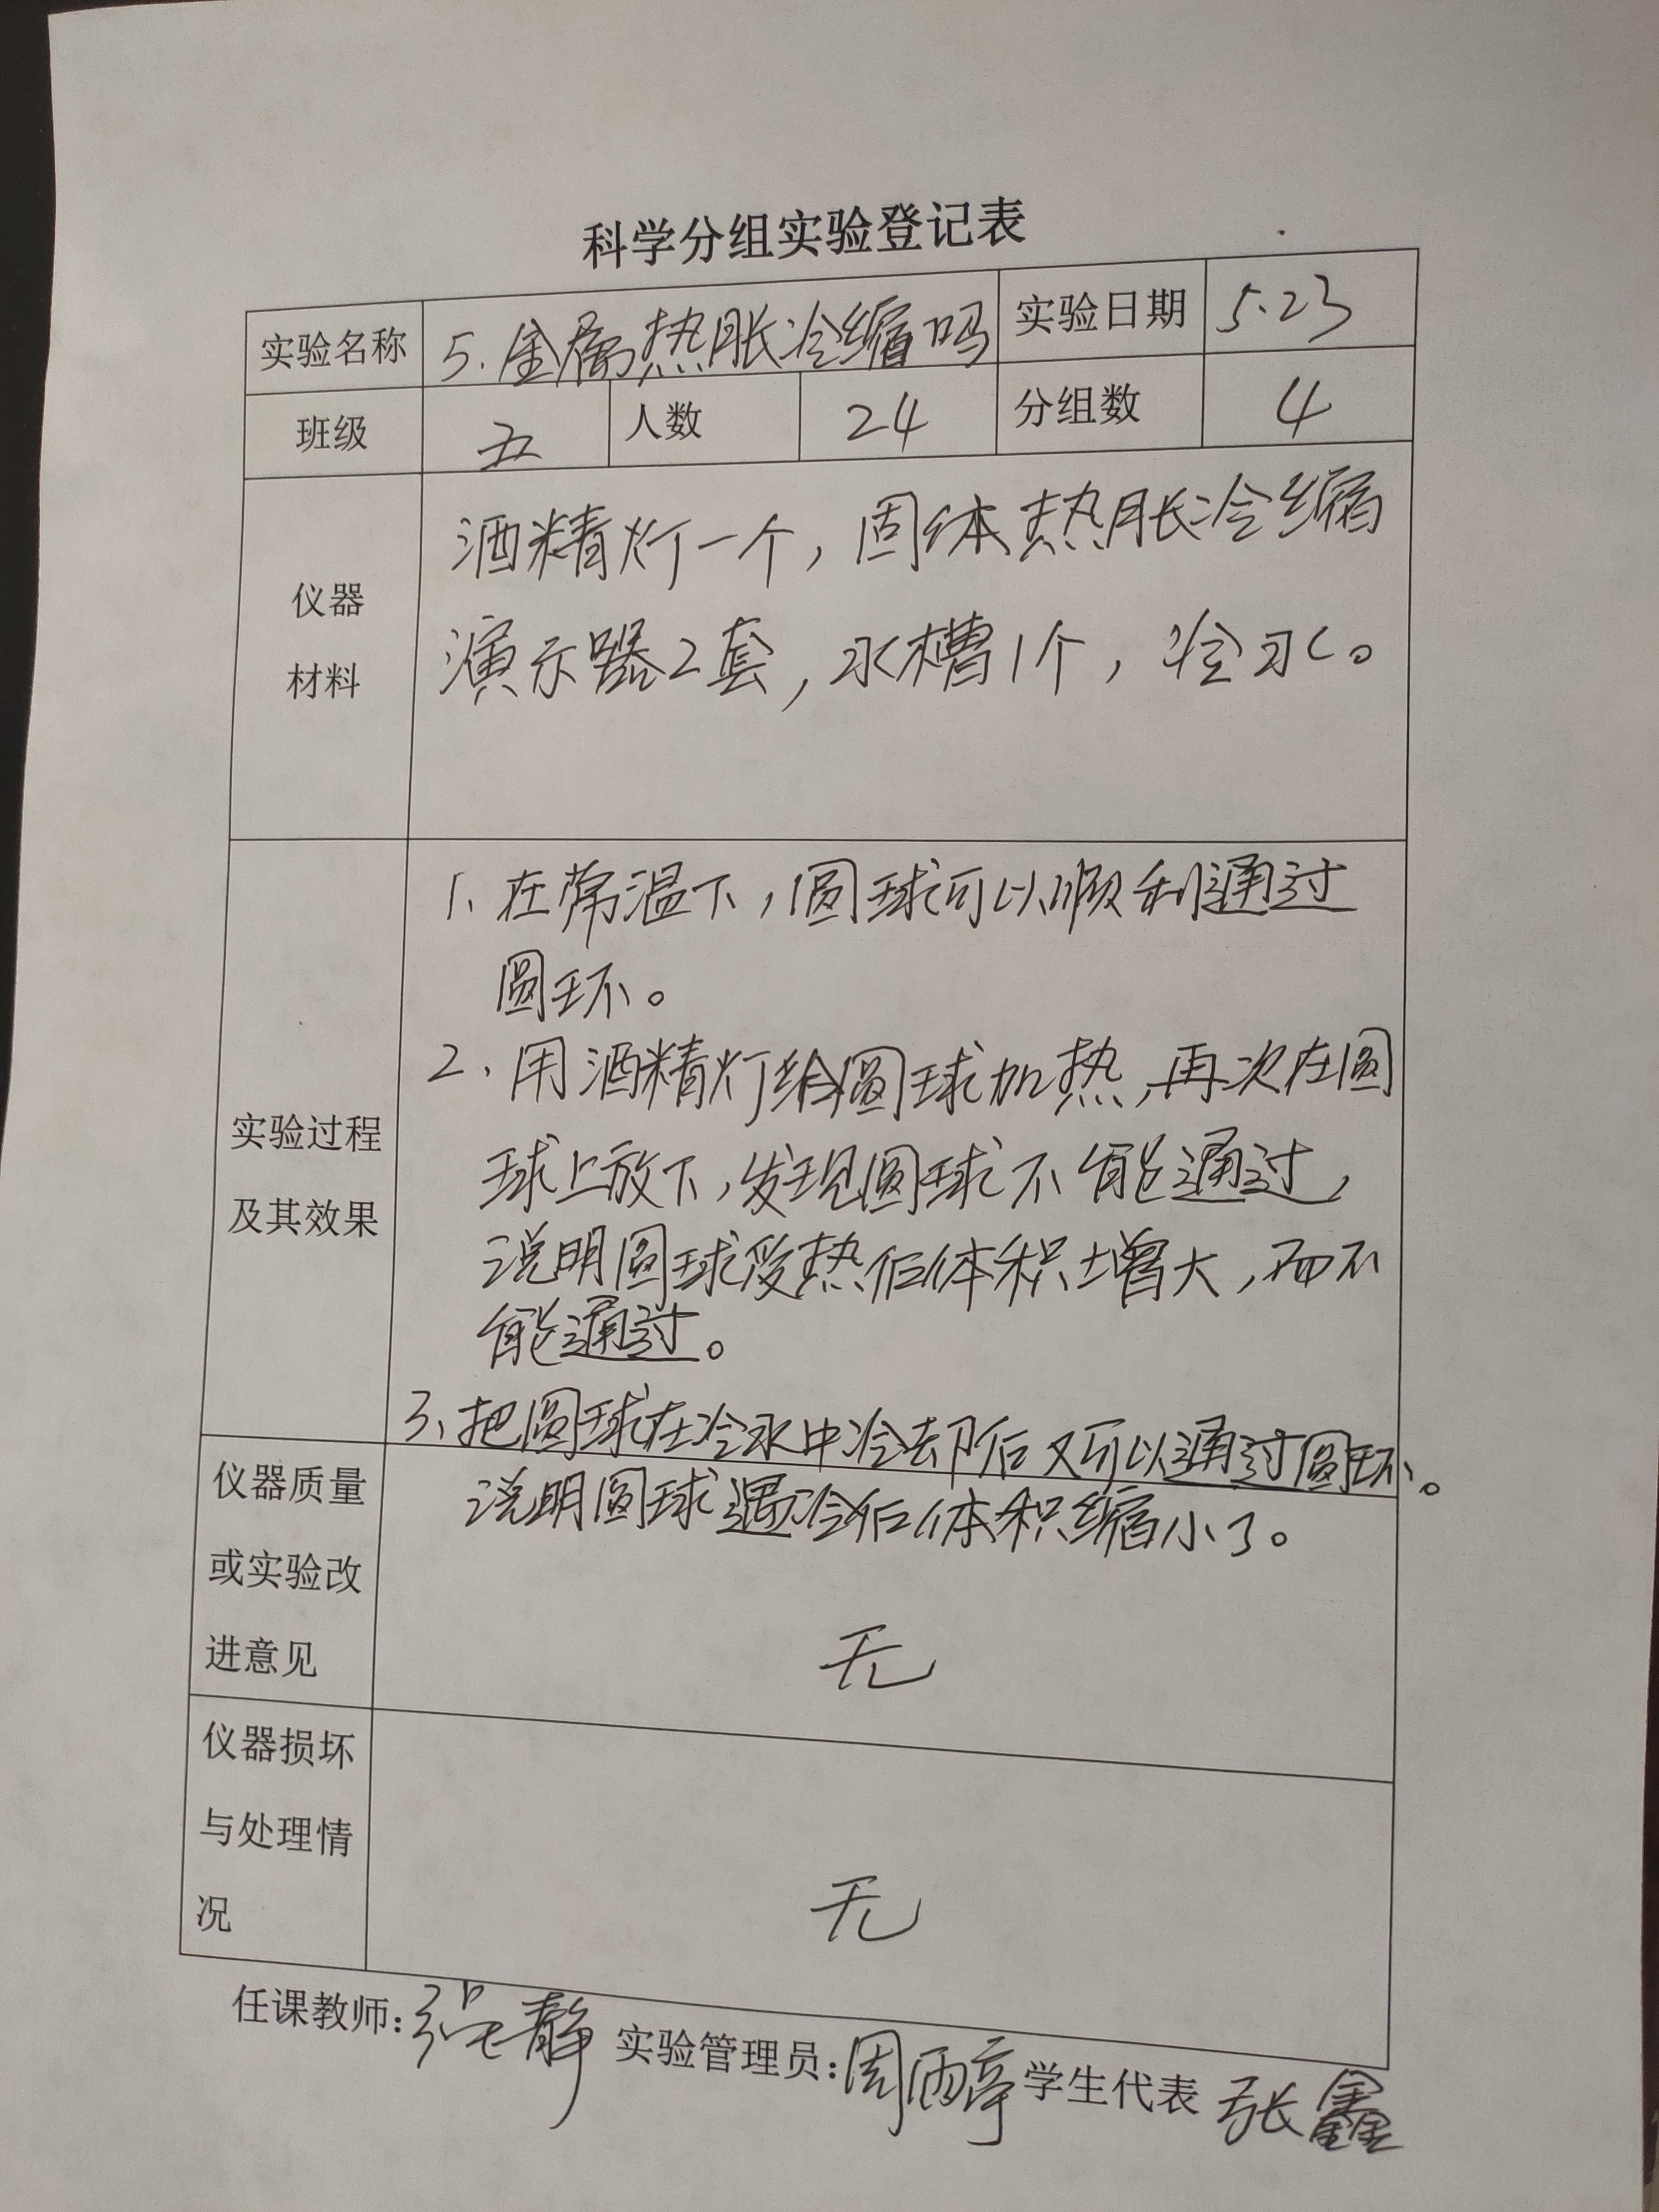 科学分组实验登记表
实验名称 5.金属热胀冷缩吗 实验日期 5.23
班级 五 人数 24 分组数 4
仪器
材料
酒精灯一个，固体热胀冷缩
演示器2套，水槽1个，冷水。
实验过程
及其效果
1、在常温下，圆球可以顺利通过
圆环。
2、用酒精灯给圆球加热，再次在圆
球上放下，发现圆球不能通过，
说明圆球受热后体积增大，而不
能通过。
3、把圆球在冷水中冷却后又可以通过圆环。
说明圆球遇冷后体积缩小了。
仪器质量
或实验改
进意见
无
仪器损坏
与处理情
况
无
任课教师：张静 实验管理员：周雨亭 学生代表 张鑫